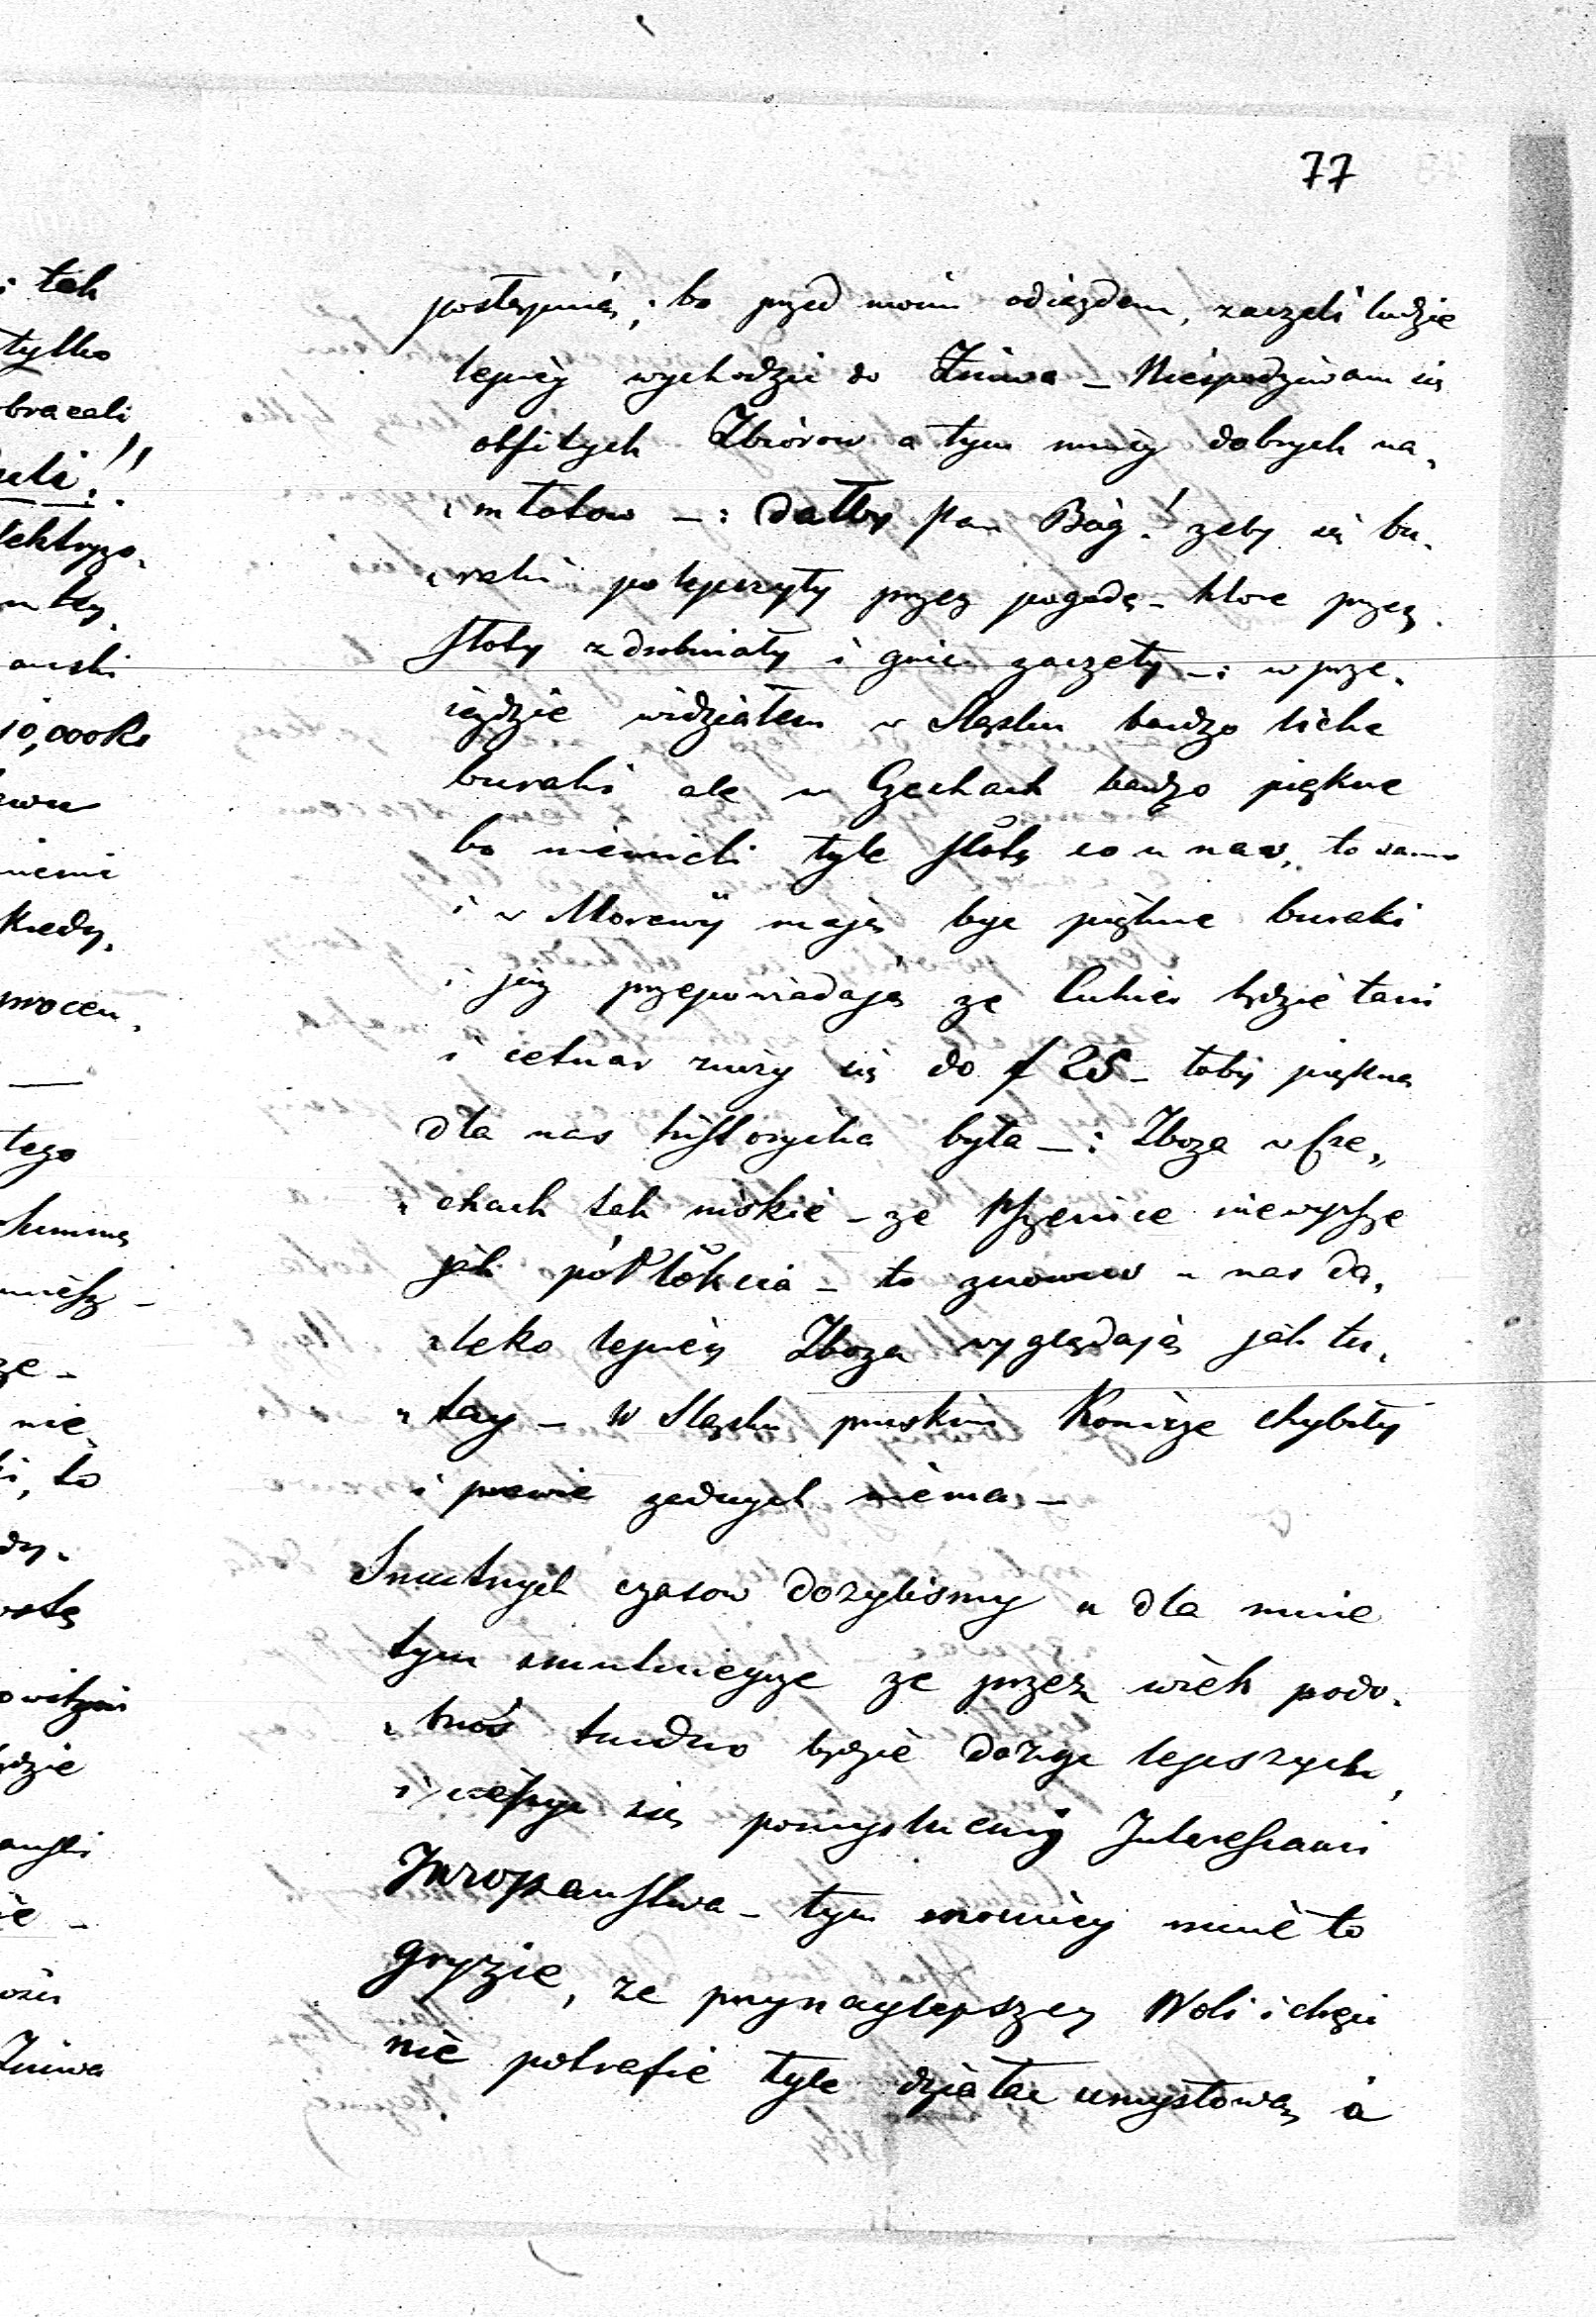 77
postąpnią; bo przed moim odiazdem, zaczęli ludzie
lepiéy wychodzić do Żniwa – Niespodziwam się
obfitych Zbiorow a tym mniéy dobrych na„
„młotow –: Dałby Pan Bóg! zeby się bu„
„raki polepszyły przez pogodę – ktore przez
słoty zdrobniały i gnić zaczęły –: w prze„
iezdzie widziałem w Sląsku bardzo liche
buraki ale w Czechach bardzo piękne
bo niemieli tyle słoty co u nas, to samo
i w Morawÿ mają byc piękne buraki
i juz przepowiadają ze Cukier będzie tani
i cetnar znizy się do f 25 – toby piękna
dla nas historyika była –: Zboza w Cze„
„chach tak niskie – ze Pszenice niewyzsze
jak pół łókcia – to znowuw u nas da„
„leko lepiéy Zboza wyglądają jak tu„
„tay – w Sląsku pruskim Konicze chybiły
i prawie zadnych niéma –
Smutnych czasow dozylismy a dla mnie
tym smutnieysze ze przez wiek podo„
„bnoś trudno będzie dozyc lepszych,
i cieszyc się pomyslnemÿ Interessami
Jwropaństwa – tym mocniéy mnie to
gryzie, ze przynaylepszey Woli i chęci
nie potrafie tyle działac umysłową a
i tak
tylko
obracali
10,000
niemi
Kiedy„
procen„
tego
Summę
nie„
to
Zniwa